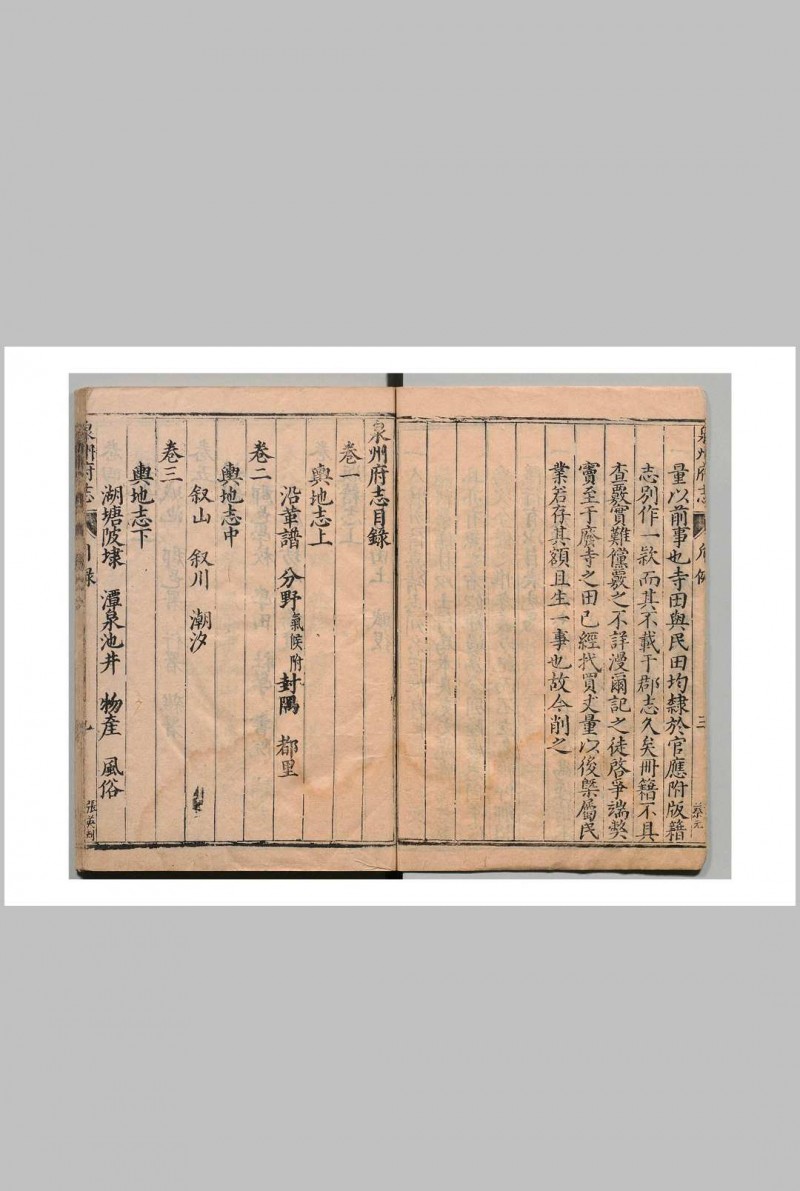 泉州府志
三
量以前事也寺田與民田均隸於官應附版籍
志别作一款而其不載于郡志久矣冊籍不具
查覈實難儻覈之不詳漫爾記之徒啓爭端獘
竇至于廢寺之田已經找買丈量以後槩屬民
業若存其額且生一事也故今削之
泉州府志目錄
卷一
輿地志上
沿革譜 分野氣候附 封隅 都里
卷二
輿地志中
叙山 叙川 潮汐
卷三
輿地志下
湖塘陂埭 潭泉池井 物產 風俗
泉州府志
目錄